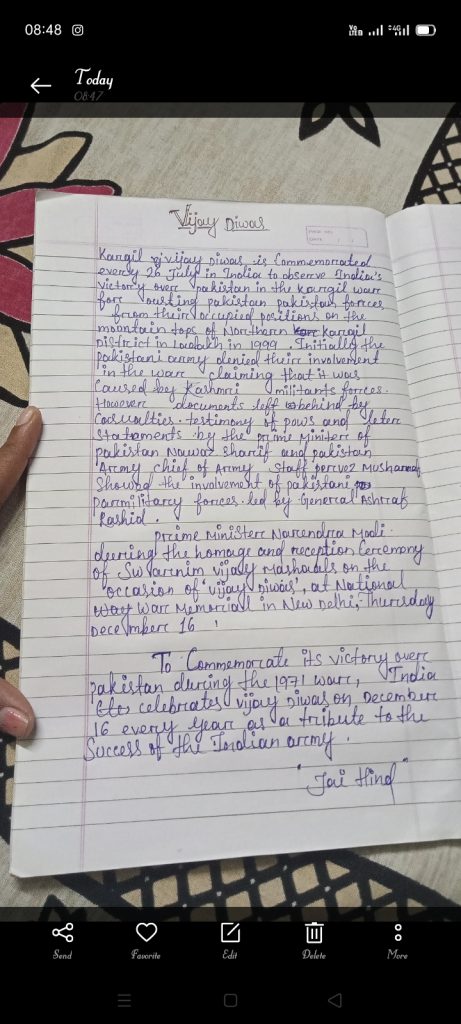 08:48
Today
08:47
Vijay Diwas
PAGE NO.
DATE / /
Kargil vijay Diwas is Commemorated
every 26 July in India to observe India's
victory over pakistan in the kargil warr
forr ousting pakistan pakistan forces
from their occupied positions on the
mountain tops of Northern kargil
District in Ladakh in 1999. Initially the
pakistani army denied their involvement
in the war claiming that it was
Caused by Kashmri militants forces.
However documents left behind by
Casualties. testimony of pows and leter
Statements by the prime Miniter of
pakistan Nawaz sharif and pakistan
Army chief of Army staff pervez Musharraf
Showed the involvement of pakistani
parmilitary forces. led by General Ashraf
Rashid.
prime Minister Narendra Modi.
deering the homage and reception Ceremony
of Swarnim vijay Mashaals on the
"occasion of 'vijay Diwas', at National
way Warr Memoriall in New Delhi, Thursday
December 16
To Commemorate its victory over
pakistan during the 1971 warr, India
celebrates vijay Diwas on December
16 every year as a tribute to the
Success of the Indian army.
"Jai Hind"
Send Favorite Edit Delete More